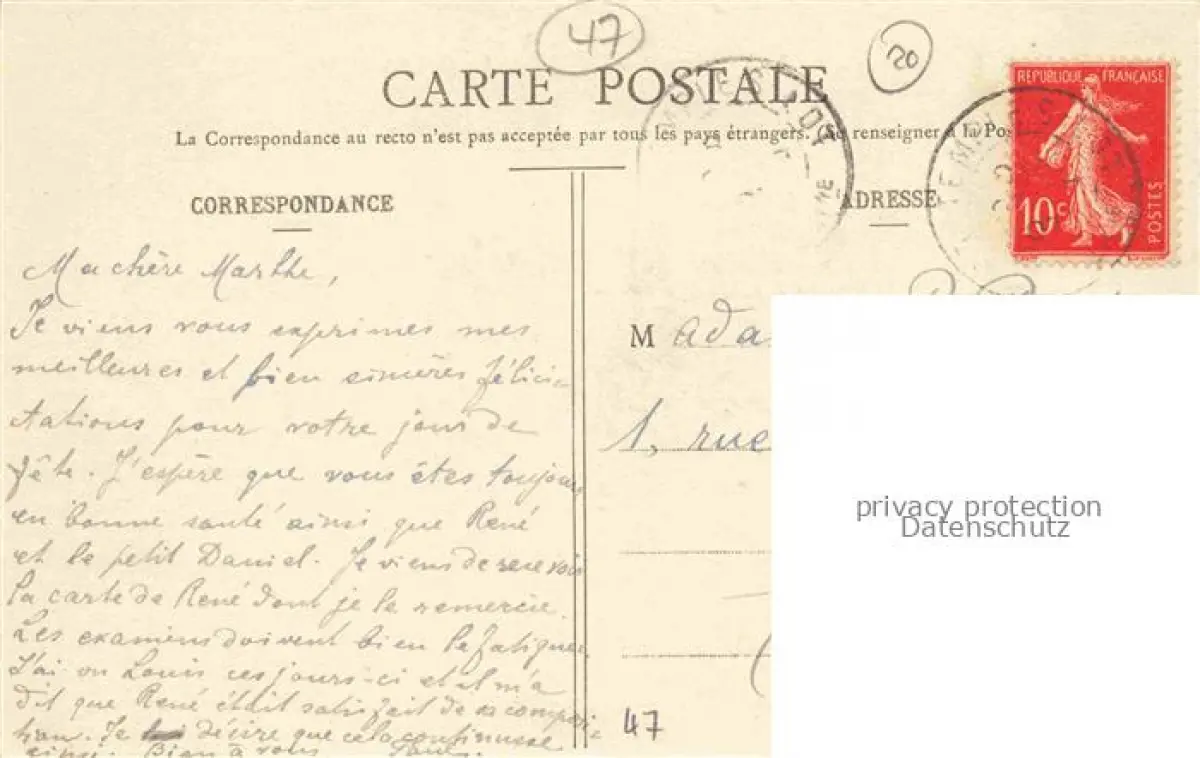 47
20
CARTE POSTALE
La Correspondance au recto n'est pas acceptée par tous les pays étrangers. (Se renseigner à la Pos
RÉPUBLIQUE FRANÇAISE
10 c
POSTES
CORRESPONDANCE
ADRESSE
Ma chère Marthe,
Je viens vous exprimer mes
meilleures et bien sincères félici
tations pour votre jour de
fête. J'espère que vous êtes toujours
en bonne santé ainsi que René
et le petit Daniel. Je viens de recevoir
la carte de René dont je le remercie.
Les examens doivent bien le fatiguer.
J'ai vu Louis ces jours-ci et il m'a
dit que René était satisfait de sa composi
tion. Je désire que cela continue
ainsi. Bien à vous
M ada
1, rue
47
privacy protection
Datenschutz